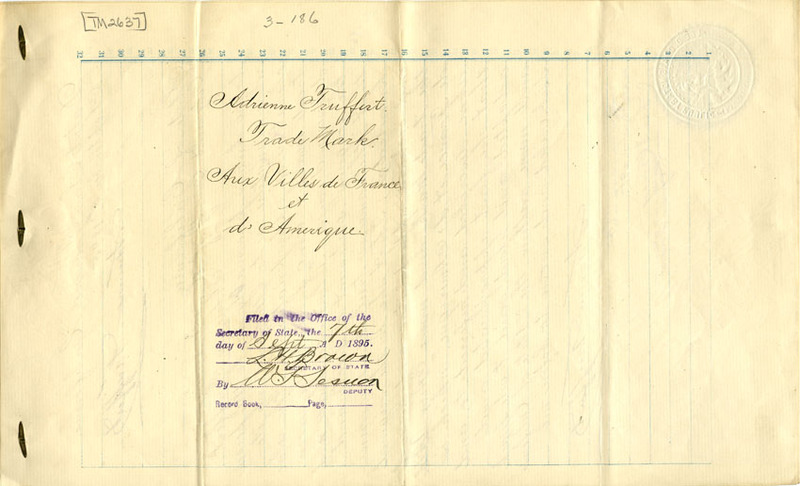 [TM2637]
3-186
32 31 30 29 28 27 26 25 24 23 22 21 20 19 18 17 16 15 14 13 12 11 10 9 8 7 6 5 4 3 2 1
Adrienne Truffert.
Trade Mark.
Aux Villes de France
et
d'Amerique
Filed in the Office of the
Secretary of State, the 7th
day of Sept A D 1895.
L. H. Brown
SECRETARY OF STATE
By
DEPUTY
Record Book, Page,